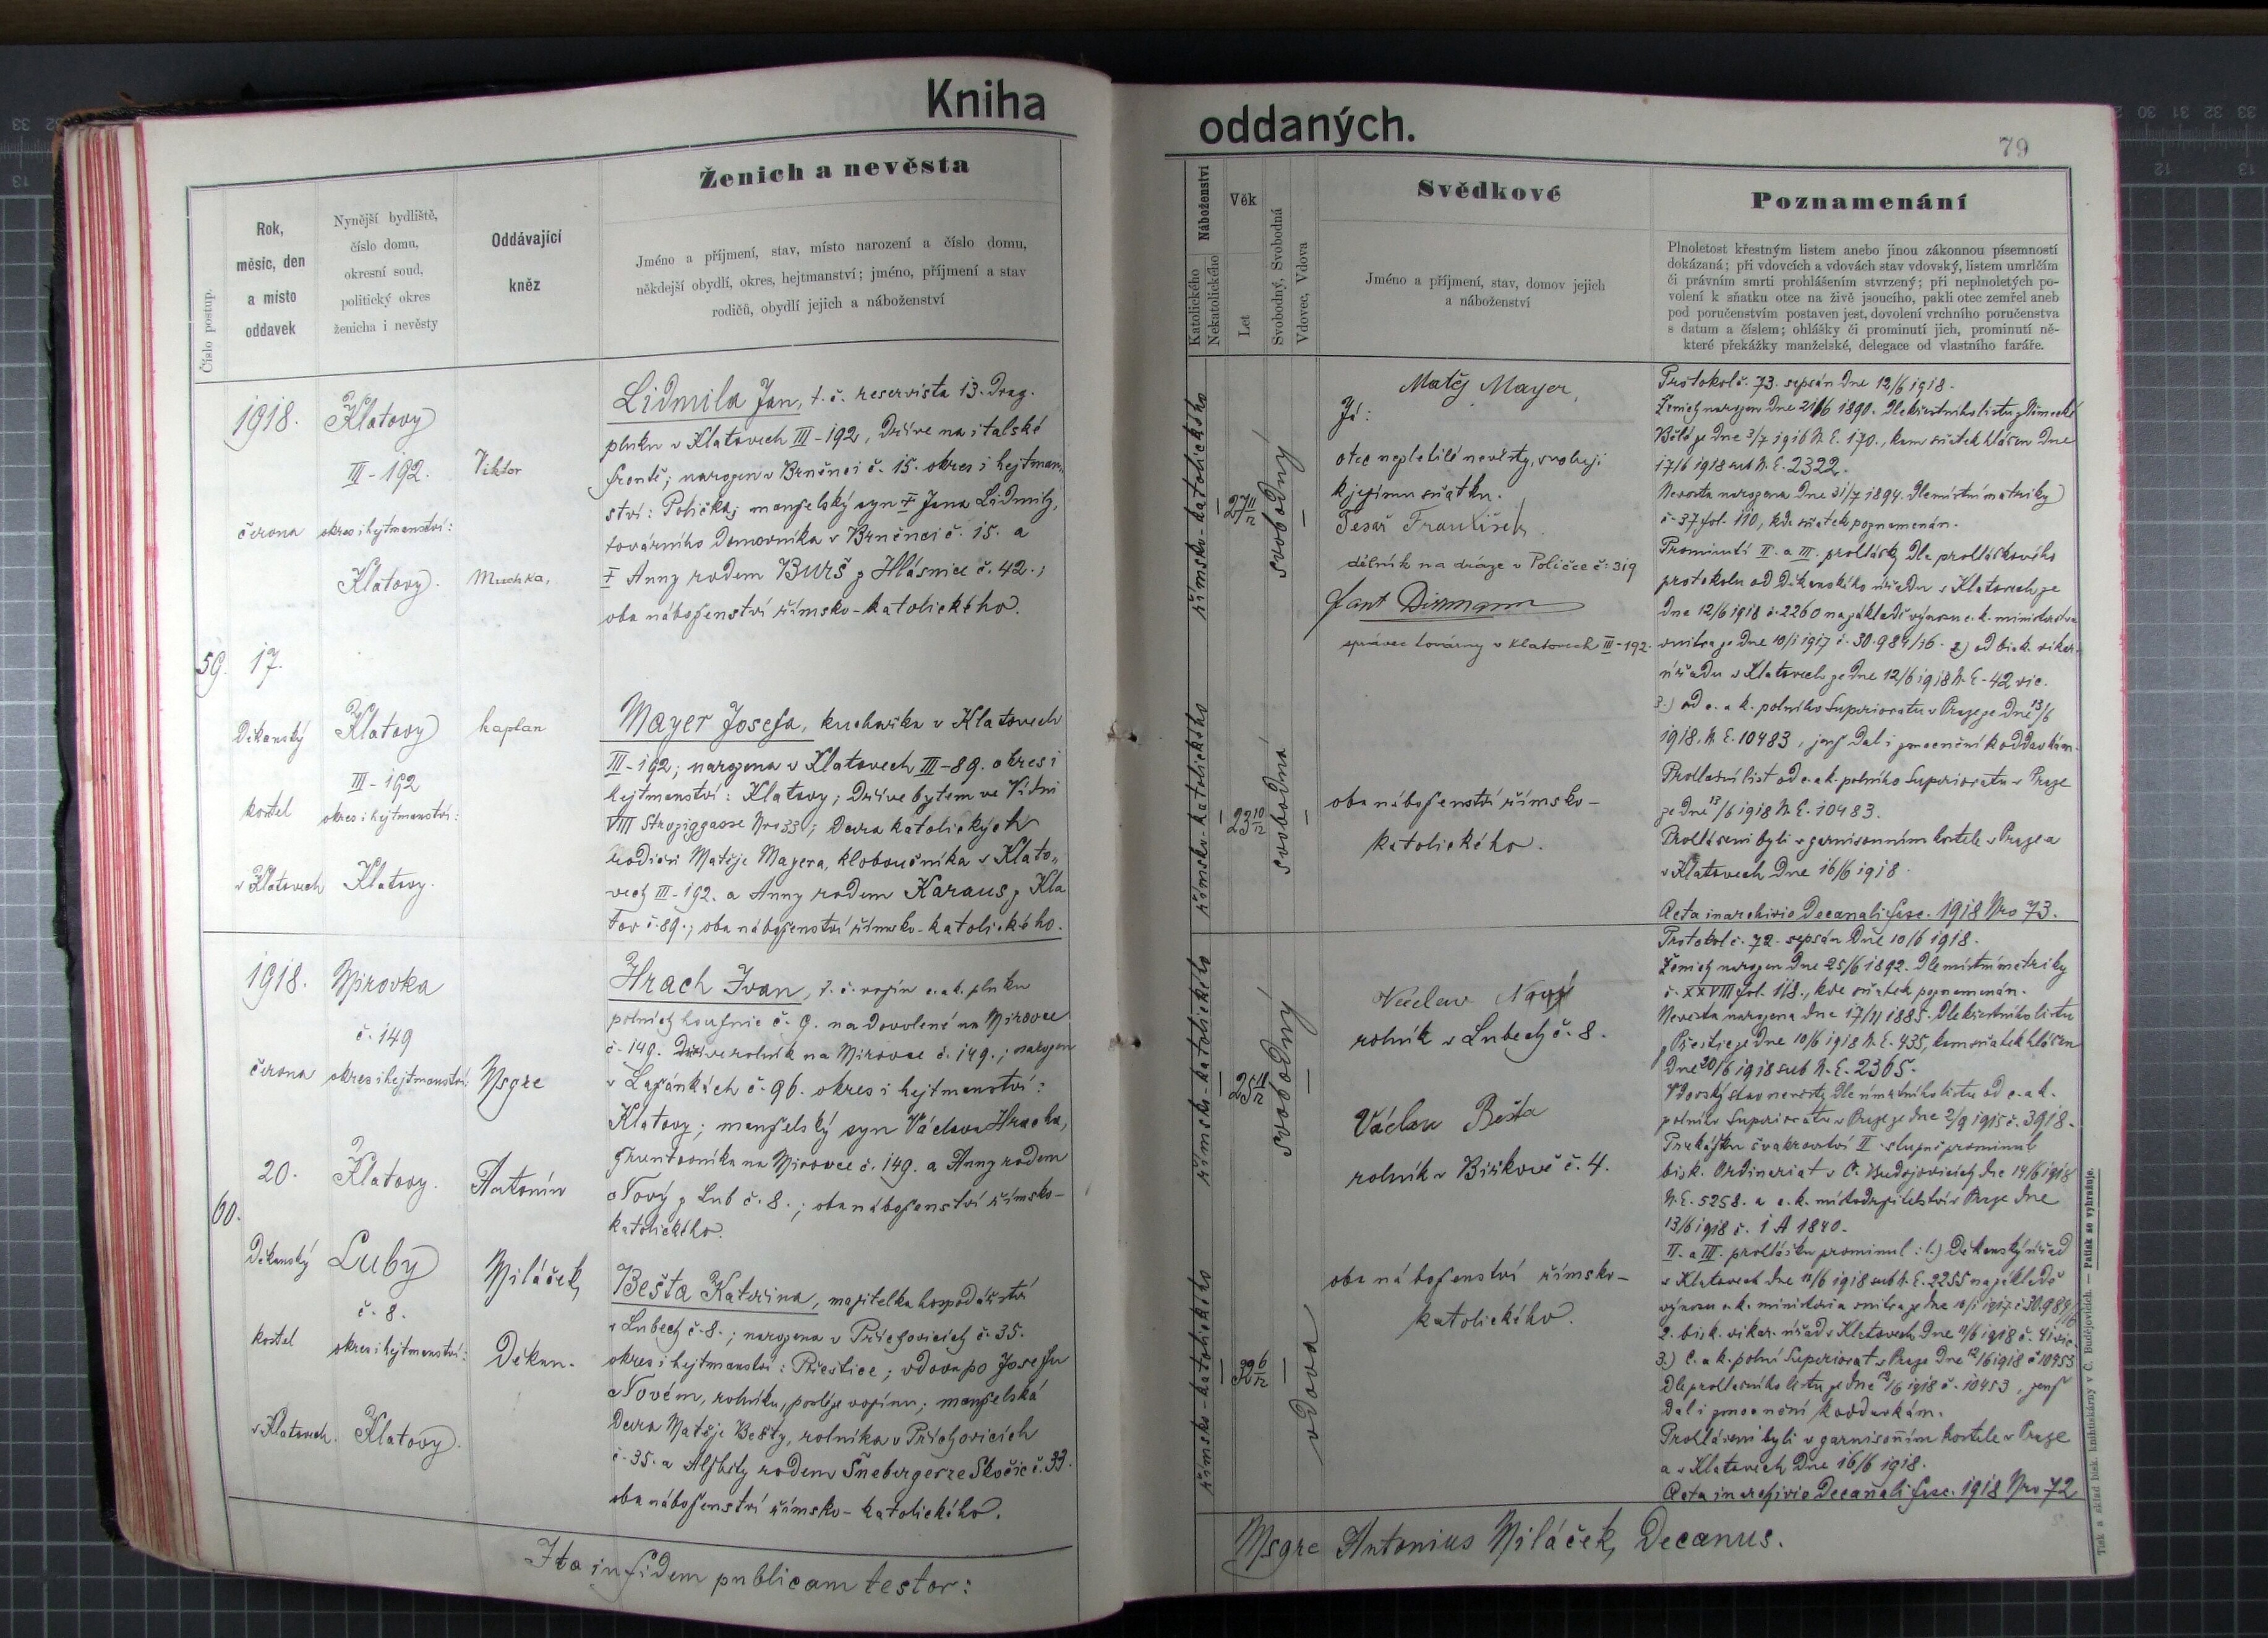 Kniha
oddaných.
79
Číslo postup.
Rok,
měsíc, den
a místo
oddavek
Nynější bydliště,
číslo domu,
okresní soud,
politický okres
ženicha i nevěsty
Oddávající
kněz
Ženich a nevěsta
Jméno a příjmení, stav, místo narození a číslo domu,
někdejší obydlí, okres, hejtmanství; jméno, příjmení a stav
rodičů, obydlí jejich a náboženství
Náboženství
Katolického
Nekatolického
Věk
Let
Svobodný, Svobodná
Vdovec, Vdova
Svědkové
Jméno a příjmení, stav, domov jejich
a náboženství
Poznamenání
Plnoletost křestným listem anebo jinou zákonnou písemností
dokázaná; při vdovcích a vdovách stav vdovský, listem umrlčím
či právním smrti prohlášením stvrzený; při neplnoletých po-
volení k sňatku otce na živě jsoucího, pakli otec zemřel aneb
pod poručenstvím postaven jest, dovolení vrchního poručenstva
s datum a číslem; ohlášky či prominutí jich, prominutí ně-
které překážky manželské, delegace od vlastního faráře.
59.
1918.
června
17.
Děkanský
kostel
v Klatovech
Klatovy
III-192.
okres i hejtmanství:
Klatovy.
Klatovy
III-192
okres i hejtmanství:
Klatovy.
Viktor
Muchka,
kaplan
Lidmila Jan, t. č. reservista 13. drag.
pluku v Klatovech III-192, dříve na italské
frontě; narozen v Brněnci č. 15. okres i hejtman-
ství: Polička; manželský syn † Jana Lidmily,
továrního domovníka v Brněnci č. 15. a
† Anny rodem Burš z Hlásnice č. 42.;
oba náboženství římsko-katolického.
Mayer Josefa, kuchařka v Klatovech
III-192; narozena v Klatovech III-89. okres i
hejtmanství: Klatovy; dříve bytem ve Vídni
VIII Strozziggasse Nro 33; dcera katolických
rodičů Matěje Mayera, kloboučníka v Klato-
vech III-192. a Anny rodem Karaus z Kla
tov č. 89.; oba náboženství římsko-katolického.
římsko-katolického
27 11/12
svobodný
římsko-katolického
23 10/12
svobodná
Matěj Mayer,
Já:
otec nezletilé nevěsty, svoluji
k jejímu sňatku.
Tesař František
dělník na dráze v Poličce č. 319
Dissmann
správce továrny v Klatovech III-192.
oba náboženství římsko-
katolického.
Protokol č. 73. sepsán dne 12/6 1918.
Ženich narozen dne 21/6 1890. Dle křestního listu z Německé
Bělé ze dne 3/7 1916 N. E. 170., kam sňatek hlášen dne
17/6 1918 sub N. E. 2322.
Nevěsta narozena dne 31/7 1894. Dle místní matriky
č. 37 fol. 110, kde sňatek poznamenán.
Prominutí II. a III. prohlášky dle prohláškového
protokolu od děkanského úřadu v Klatovech ze
dne 12/6 1918 č. 2260 na základě výnosu c. k. ministerstva
vnitra ze dne 10/1 1917 č. 30.984/16. 2) od bisk. vikar.
úřadu v Klatovech ze dne 12/6 1918 N. E. 42 vic.
3.) od c. a k. polního Superiorátu v Praze ze dne 13/6
1918. N. E. 10483, jenž dal i zmocnění k oddavkám.
Prohlasní list od c. a k. polního Superiorátu v Praze
ze dne 13/6 1918 N. E. 10483.
Prohlášeni byli v garnisonním kostele v Praze a
v Klatovech dne 16/6 1918.
Acta in archivio Decanali fasc. 1918 Nro 73.
60.
1918.
června
20.
Děkanský
kostel
v Klatovech.
Mirovka
č. 149
okres i hejtmanství:
Klatovy.
Luby
č. 8.
okres i hejtmanství:
Klatovy.
Msgre
Antonín
Miláček,
Děkan.
Hrach Ivan, t. č. vojín c. a k. pluku
polních houfnic č. 9. na dovolené na Mirovce
č. 149. dříve rolník na Mirovce č. 149.; narozen
v Lažánkách č. 96. okres i hejtmanství:
Klatovy; manželský syn Václava Hracha,
gruntovníka na Mirovce č. 149. a Anny rodem
Nový z Lub č. 8.; oba náboženství římsko-
katolického.
Bešta Kateřina, majitelka hospodářství
v Lubech č. 8.; narozena v Příchovicích č. 35.
okres i hejtmanství: Přeštice; vdova po Josefu
Novém, rolníku, později vojínu; manželská
dcera Matěje Bešty, rolníka v Příchovicích
č. 35. a Alžběty rodem Šneberger ze Skočic č. 33.
oba náboženství římsko-katolického.
římsko-katolického
25 11/12
svobodný
římsko-katolického
32 6/12
vdova
Václav Nový
rolník v Lubech č. 8.
Václav Bešta
rolník v Biřkově č. 4.
oba náboženství římsko-
katolického.
Protokol č. 72. sepsán dne 10/6 1918.
Ženich narozen dne 25/6 1892. Dle místní matriky
č. XXVIII fol. 118., kde sňatek poznamenán.
Nevěsta narozena dne 17/11 1885. Dle křestního listu
z Přeštic ze dne 10/6 1918 N. E. 435, kam sňatek hlášen
dne 20/6 1918 sub N. E. 2365.
Vdovský stav nevěsty dle úmrtního listu od c. a k.
polního Superiorátu v Praze ze dne 2/9 1915 č. 3918.
Překážku švakrovství II. stupně prominul
bisk. Ordinariat v Č. Budějovicích dne 14/6 1918
N. E. 5258. a c. k. místodržitelství v Praze dne
13/6 1918 č. 1 A 1840.
II. a III. prohlášku prominul: 1.) Děkanský úřad
v Klatovech dne 11/6 1918 sub N. E. 2255 na základě
výnosu c. k. ministeria vnitra ze dne 10/1 1917. č. 30.984/16
2. bisk. vikar. úřad v Klatovech dne 11/6 1918 č. 41 vic.
3.) C. a k. polní Superiorat v Praze dne 12/6 1918 č. 10453
dle prohlasního listu ze dne 12/6 1918 č. 10453, jenž
dal i zmocnění k oddavkám.
Prohlášeni byli v garnisoním kostele v Praze
a v Klatovech dne 16/6 1918.
Acta in archivio Decanali fasc. 1918 Nro 72
Ita in fidem publicam testor:
Msgre Antonius Miláček, Decanus.
Tisk a sklad bisk. knihtiskárny v Č. Budějovicích. — Patisk se vyhražuje.